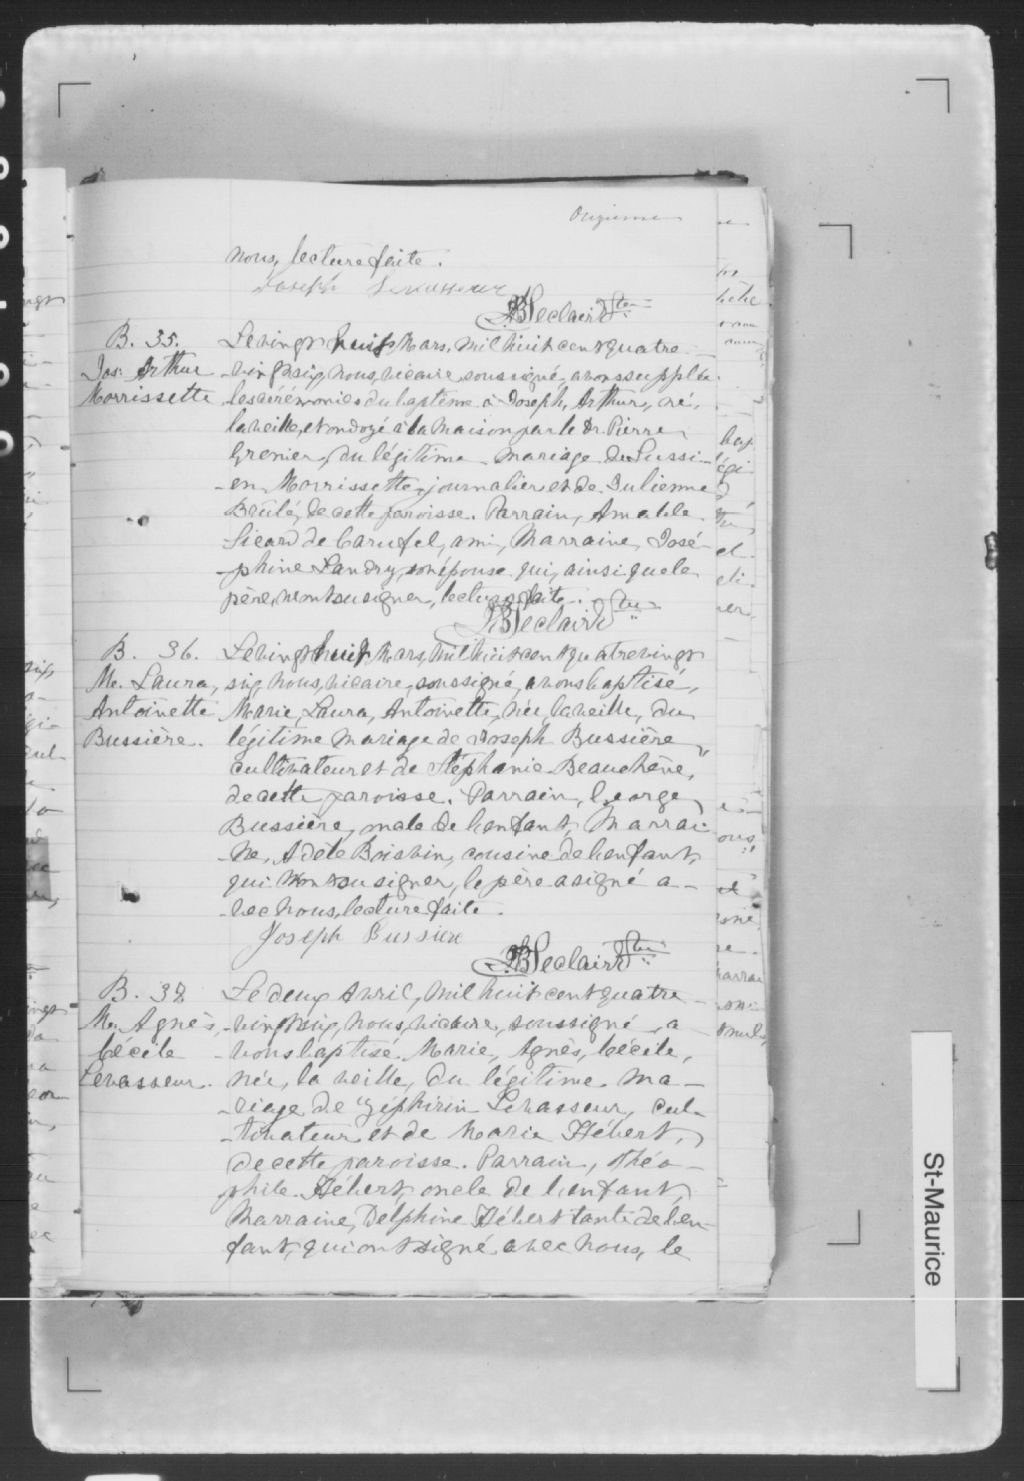 Onzieme
nous, lecture faite.
Joseph Levasseur
JBLeclair Ptre
B. 35. Le vingt huit Mars, mil huit cent quatre
Jos. Arthur -vingt six, nous, vicaire, soussigné, avons supplée
Morrissette les cérémonies du baptême à Joseph, Arthur, né,
la veille, et ondoyé à la maison par le Dr. Pierre
Grenier, du légitime mariage De Lussi-
-en Morrissette, journalier et de Julienne
Brulé, de cette paroisse. Parrain, Amable
Sicard de Carufel, ami, Marraine, José-
-phine Landry, son épouse qui, ainsi que le
père, n'ont su signer, lecture faite.
JBLeclair Ptre
B. 36. Le vingt huit Mars, mil huit cent quatrevingt
Me. Laura, six, nous, vicaire, soussigné, avons baptisé,
Antoinette Marie, Laura, Antoinette, née, la veille, du
Bussière. légitime mariage de Joseph Bussière
cultivateur et de Stéphanie Beauchêne,
de cette paroisse. Parrain, George
Bussière, oncle de l'enfant, Marrai-
-ne, Adèle Boisvin, cousine de l'enfant,
qui n'ont su signer, le père a signé a-
-vec nous, lecture faite.
Joseph Bussiere
JBLeclair Ptre
B. 37. Le deux Avril, mil huit cent quatre
Me. Agnès, -vingt six, nous, vicaire, soussigné, a-
Cécile -vons baptisé Marie, Agnès, Cécile,
Levasseur. née, la veille, du légitime ma-
-riage de Zéphirin Levasseur, cul-
-tivateur et de Marie Hébert,
de cette paroisse. Parrain, Théo-
phile Hébert, oncle de l'enfant,
Marraine, Delphine Hébert tante de l'en-
fant, qui ont signé avec nous, le
St-Maurice